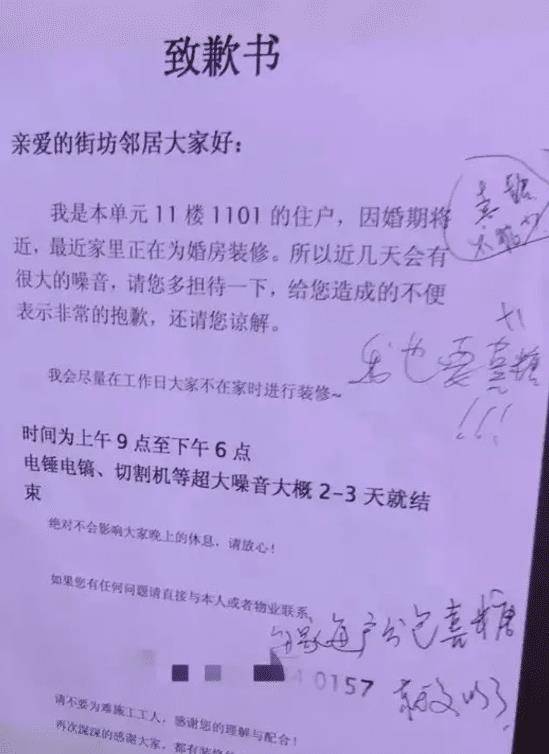 致歉书
亲爱的街坊邻居大家好：
我是本单元11楼1101的住户，因婚期将
近，最近家里正在为婚房装修。所以近几天会有
很大的噪音，请您多担待一下，给您造成的不便
表示非常的抱歉，还请您谅解。
喜糖
不能少
+1
我也要喜糖
!!!
我会尽量在工作日大家不在家时进行装修~
时间为上午9点至下午6点
电锤电镐、切割机等超大噪音大概2-3天就结
束
绝对不会影响大家晚上的休息，请放心！
如果您有任何问题请直接与本人或者物业联系
每户一包喜糖
就可以了
0157
请不要为难施工工人，感谢您的理解与配合！
再次深深的感谢大家，都有装修